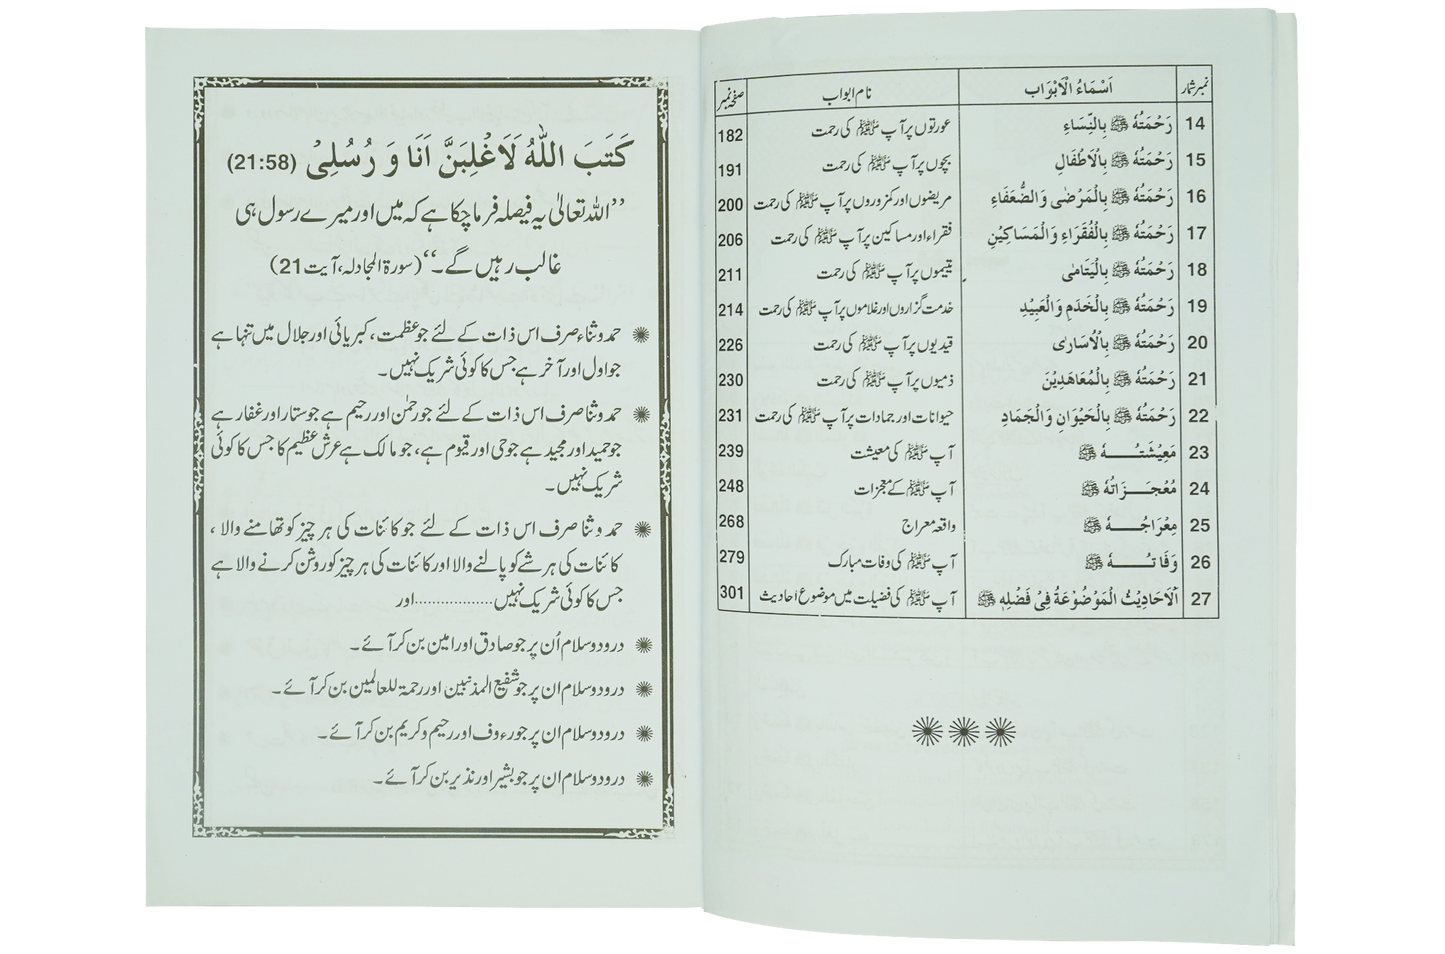 نمبر شمار اَسْمَاءُ الْاَبْوَاب نام ابواب صفحہ نمبر
14 رَحْمَتُهٗ ﷺ بِالنِّسَاءِ عورتوں پر آپ ﷺ کی رحمت 182
15 رَحْمَتُهٗ ﷺ بِالْاَطْفَالِ بچوں پر آپ ﷺ کی رحمت 191
16 رَحْمَتُهٗ ﷺ بِالْمَرْضٰى وَالضُّعَفَاءِ مریضوں اور کمزوروں پر آپ ﷺ کی رحمت 200
17 رَحْمَتُهٗ ﷺ بِالْفُقَرَاءِ وَالْمَسَاكِيْنِ فقراء اور مساکین پر آپ ﷺ کی رحمت 206
18 رَحْمَتُهٗ ﷺ بِالْيَتَامٰى یتیموں پر آپ ﷺ کی رحمت 211
19 رَحْمَتُهٗ ﷺ بِالْخَدَمِ وَالْعَبِيْدِ خدمت گزاروں اور غلاموں پر آپ ﷺ کی رحمت 214
20 رَحْمَتُهٗ ﷺ بِالْاُسَارٰى قیدیوں پر آپ ﷺ کی رحمت 226
21 رَحْمَتُهٗ ﷺ بِالْمُعَاهَدِيْنَ ذمیوں پر آپ ﷺ کی رحمت 230
22 رَحْمَتُهٗ ﷺ بِالْحَيْوَانِ وَالْجَمَادِ حیوانات اور جمادات پر آپ ﷺ کی رحمت 231
23 مَعِيْشَتُهٗ ﷺ آپ ﷺ کی معیشت 239
24 مُعْجِزَاتُهٗ ﷺ آپ ﷺ کے معجزات 248
25 مِعْرَاجُهٗ ﷺ واقعہ معراج 268
26 وَفَاتُهٗ ﷺ آپ ﷺ کی وفات مبارک 279
27 اَلْاَحَادِيْثُ الْمَوْضُوْعَةُ فِىْ فَضْلِهٖ ﷺ آپ ﷺ کی فضیلت میں موضوع احادیث 301
كَتَبَ اللّٰهُ لَاَغْلِبَنَّ اَنَا وَ رُسُلِىْ (21:58)
’’اللہ تعالیٰ یہ فیصلہ فرما چکا ہے کہ میں اور میرے رسول ہی
غالب رہیں گے۔‘‘ (سورۃ المجادلہ، آیت 21)
حمد و ثناء صرف اس ذات کے لئے جو عظمت، کبریائی اور جلال میں تنہا ہے
جو اول اور آخر ہے جس کا کوئی شریک نہیں۔
حمد و ثنا صرف اس ذات کے لئے جو رحمٰن اور رحیم ہے جو ستار اور غفار ہے
جو حمید اور مجید ہے جو حی اور قیوم ہے، جو مالک ہے عرش عظیم کا جس کا کوئی
شریک نہیں۔
حمد و ثنا صرف اس ذات کے لئے جو کائنات کی ہر چیز کو تھامنے والا،
کائنات کی ہر شے کو پالنے والا اور کائنات کی ہر چیز کو روشن کرنے والا ہے
جس کا کوئی شریک نہیں..................اور
درود و سلام اُن پر جو صادق اور امین بن کر آئے۔
درود و سلام ان پر جو شفیع المذنبین اور رحمۃ للعالمین بن کر آئے۔
درود و سلام ان پر جو رءوف اور رحیم و کریم بن کر آئے۔
درود و سلام ان پر جو بشیر اور نذیر بن کر آئے۔